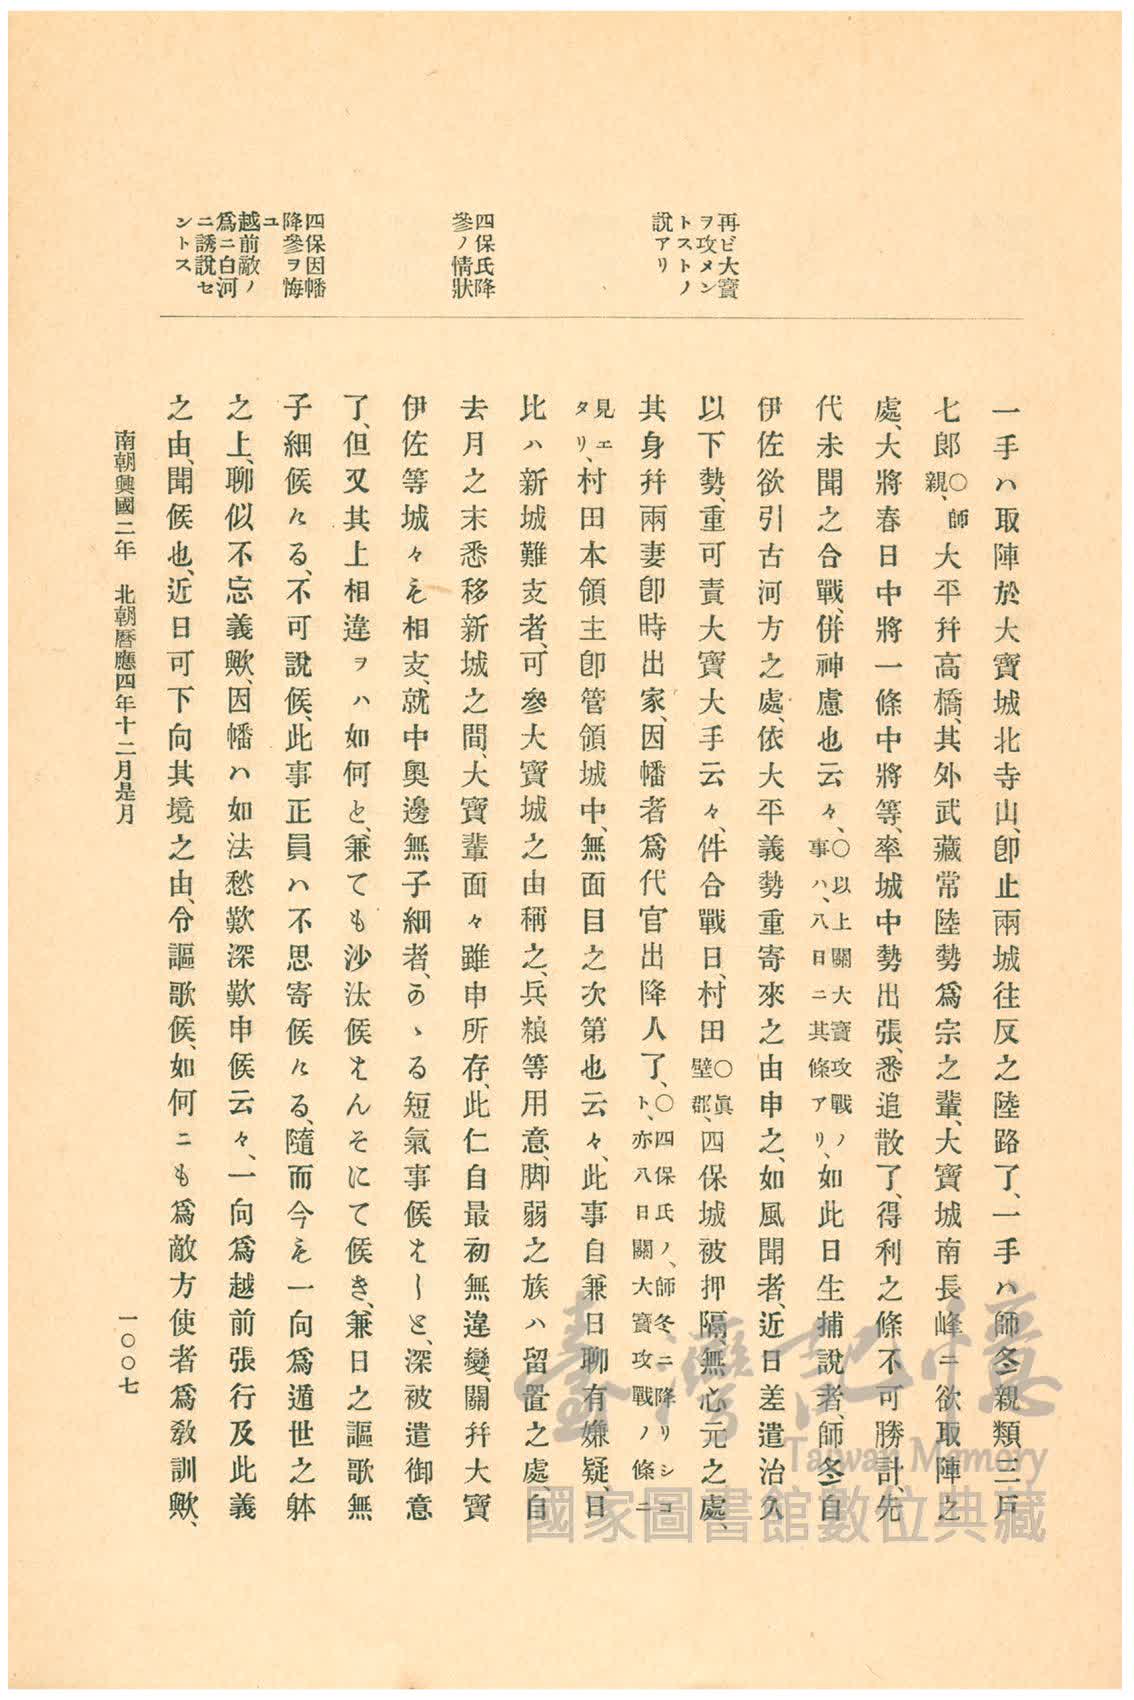 再ビ大寶
ヲ攻メン
トストノ
說アリ
四保氏降
參ノ情狀
四保因幡
降參ヲ悔
ユ
越前敵ノ
爲ニ白河
ニ誘說セ
ントス
一手ハ取陣於大寶城北寺山、卽止兩城往反之陸路了、一手ハ師冬親類三戶
七郞〇師親、大平幷高橋、其外武藏常陸勢爲宗之輩、大寶城南長峰ニ欲取陣之
處、大將春日中將一條中將等、率城中勢出張、悉追散了、得利之條不可勝計、先
代未聞之合戰、併神慮也云々、〇以上關大寶攻戰ノ事ハ、八日ニ其條アリ、如此日生捕說者、師冬自
伊佐欲引古河方之處、依大平義勢重寄來之由申之、如風聞者、近日差遣治久
以下勢、重可責大寶大手云々、件合戰日、村田〇眞壁郡、四保城被押隔、無心元之處、
其身幷兩妻卽時出家、因幡者爲代官出降人了、〇四保氏ノ、師冬ニ降リシコト、亦八日關大寶攻戰ノ條ニ
見エタリ、村田本領主卽管領城中、無面目之次第也云々、此事自兼日聊有嫌疑、日
比ハ新城難支者、可參大寶城之由稱之、兵粮等用意、脚弱之族ハ留置之處、自
去月之末悉移新城之間、大寶輩面々雖申所存、此仁自最初無違變、關幷大寶
伊佐等城々も相支、就中奧邊無子細者、のゝる短氣事候はしと、深被遣御意
了、但又其上相違ヲハ如何と、兼ても沙汰候はんそにて候き、兼日之謳歌無
子細候ける、不可說候、此事正員ハ不思寄候ける、隨而今も一向爲遁世之躰
之上、聊似不忘義歟、因幡ハ如法愁歎深歎申候云々、一向爲越前張行及此義
之由、聞候也、近日可下向其境之由、令謳歌候、如何ニも爲敵方使者爲敎訓歟、
南朝興國二年　北朝曆應四年十二月是月
一〇〇七
臺灣記憶
Taiwan Memory
國家圖書館數位典藏